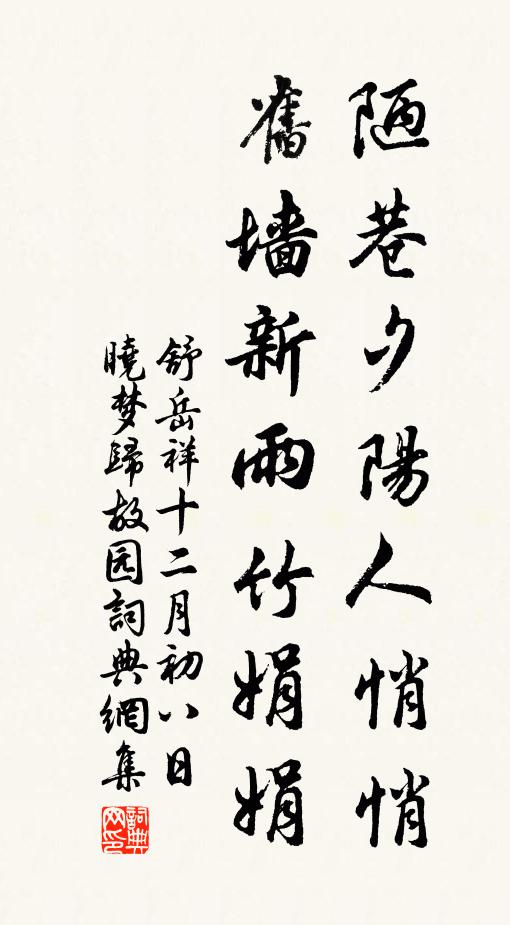 陋巷夕陽人悄悄
舊墙新雨竹娟娟
舒岳祥十二月初八日
曉梦歸故园詞典網集
詞典网印